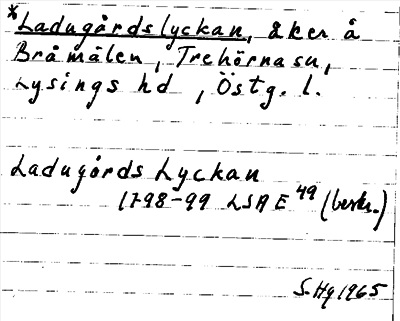 *Ladugårdslyckan, åker å
Bråmålen, Trehörnasn,
Lysings hd, Östg. l.
Ladugårds Lyckan
1798-99 LSA E 49 (beskr.)
S. Hg 1965